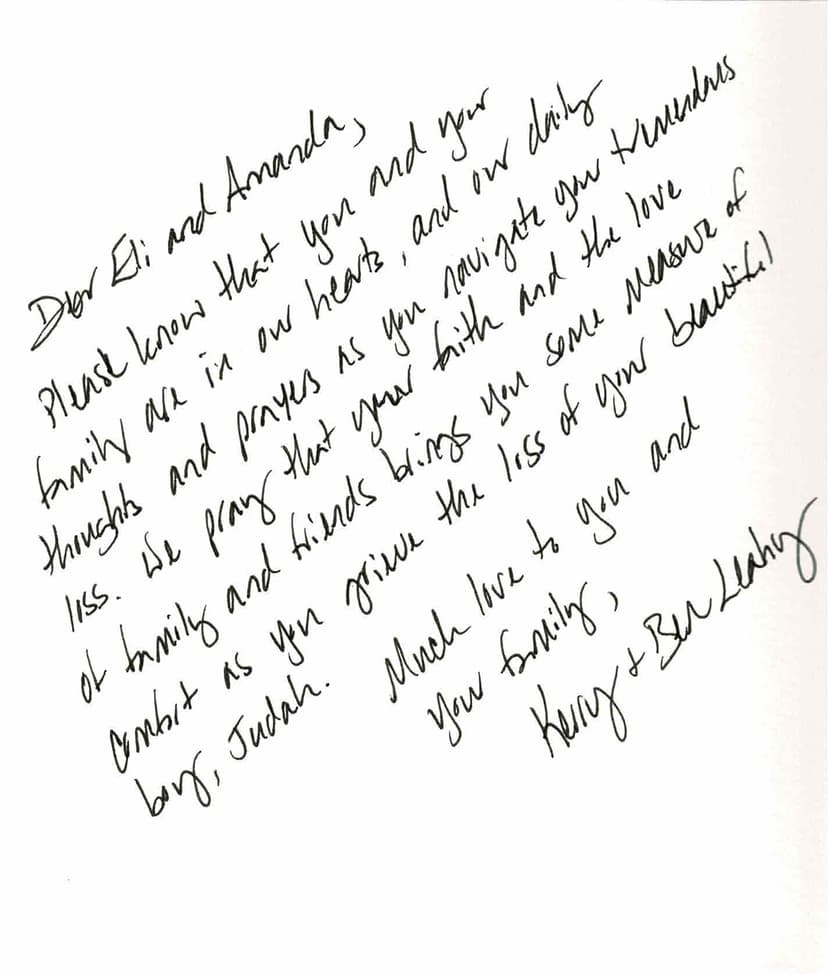 Dear Eli and Amanda,
Please know that you and your
family are in our hearts, and our daily
thoughts and prayers as you navigate your tremendous
loss. We pray that your faith and the love
of family and friends brings you some measure of
comfort as you grieve the loss of your beautiful
boy, Judah.
Much love to you and
your family,
Kerry + Ben Leahy